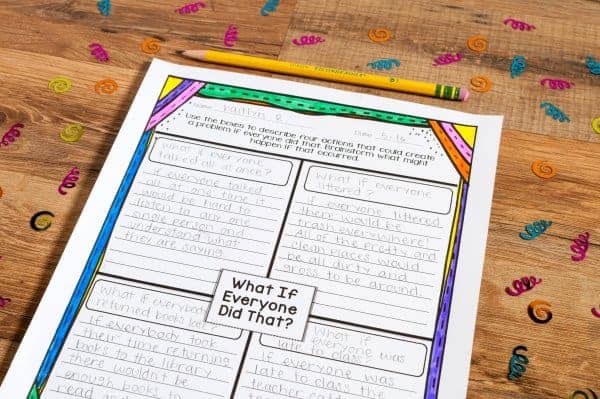 Name: Kaitlyn R Date: 5.16
Use the boxes to describe four actions that could create
a problem if everyone did that. Brainstorm what might
happen if that occurred.
What if everyone
talked all at once?
If everyone talked
all at one time it
would be hard to
listen to any one
single person and
understand what
they are saying.
What if everyone
littered?
If everyone littered
there would be
trash everywhere!
All of the pretty and
clean places would
be all dirty and
gross to be around.
What If
Everyone
Did That?
What if everybody
returned books late?
If everybody took
their time returning
books to the library
there wouldn't be
enough books to
read
What if everyone was
late to class?
If everyone was
late to class the
teacher